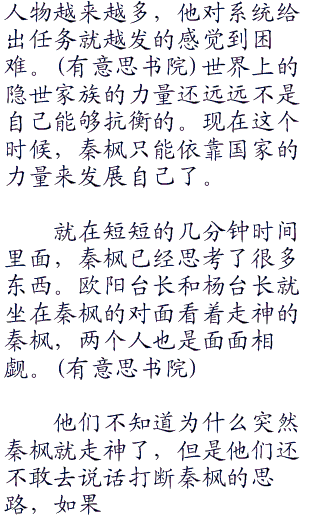 人物越来越多，他对系统给
出任务就越发的感觉到困
难。(有意思书院)世界上的
隐世家族的力量还远远不是
自己能够抗衡的。现在这个
时候，秦枫只能依靠国家的
力量来发展自己了。
就在短短的几分钟时间
里面，秦枫已经思考了很多
东西。欧阳台长和杨台长就
坐在秦枫的对面看着走神的
秦枫，两个人也是面面相
觑。(有意思书院)
他们不知道为什么突然
秦枫就走神了，但是他们还
不敢去说话打断秦枫的思
路，如果